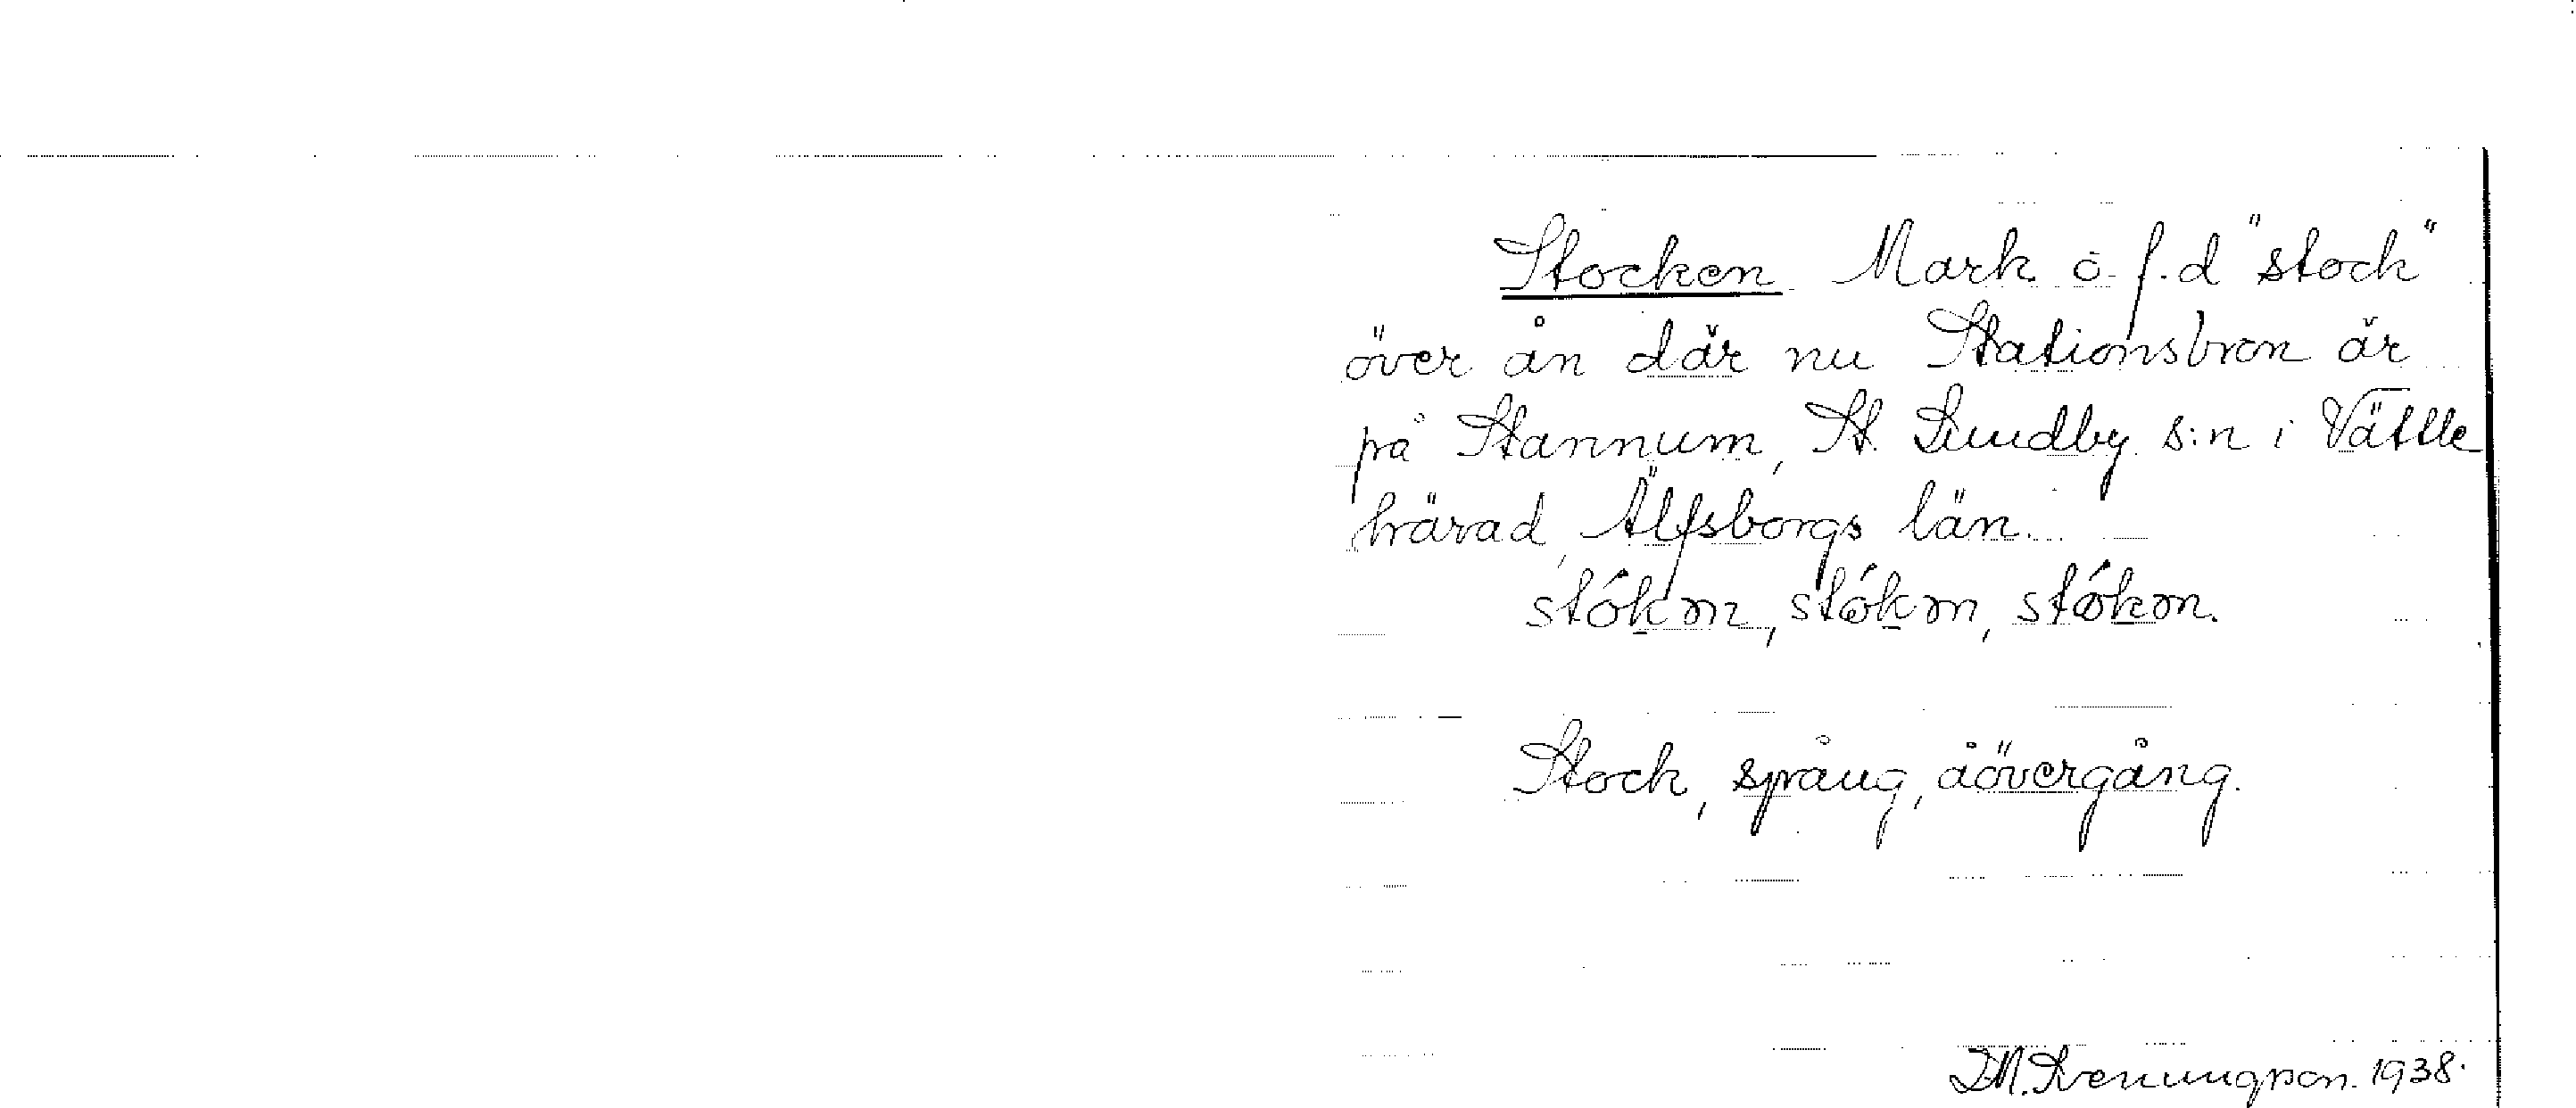 Stocken Mark o. f.d "stock"
över ån där nu Stationsbron är
på Stannum, St. Lundby s:n i Vättle
härad, Älfsborgs län.
stókɷn, stókɷn, stókɷn.
Stock, spång, åövergång.
1938.